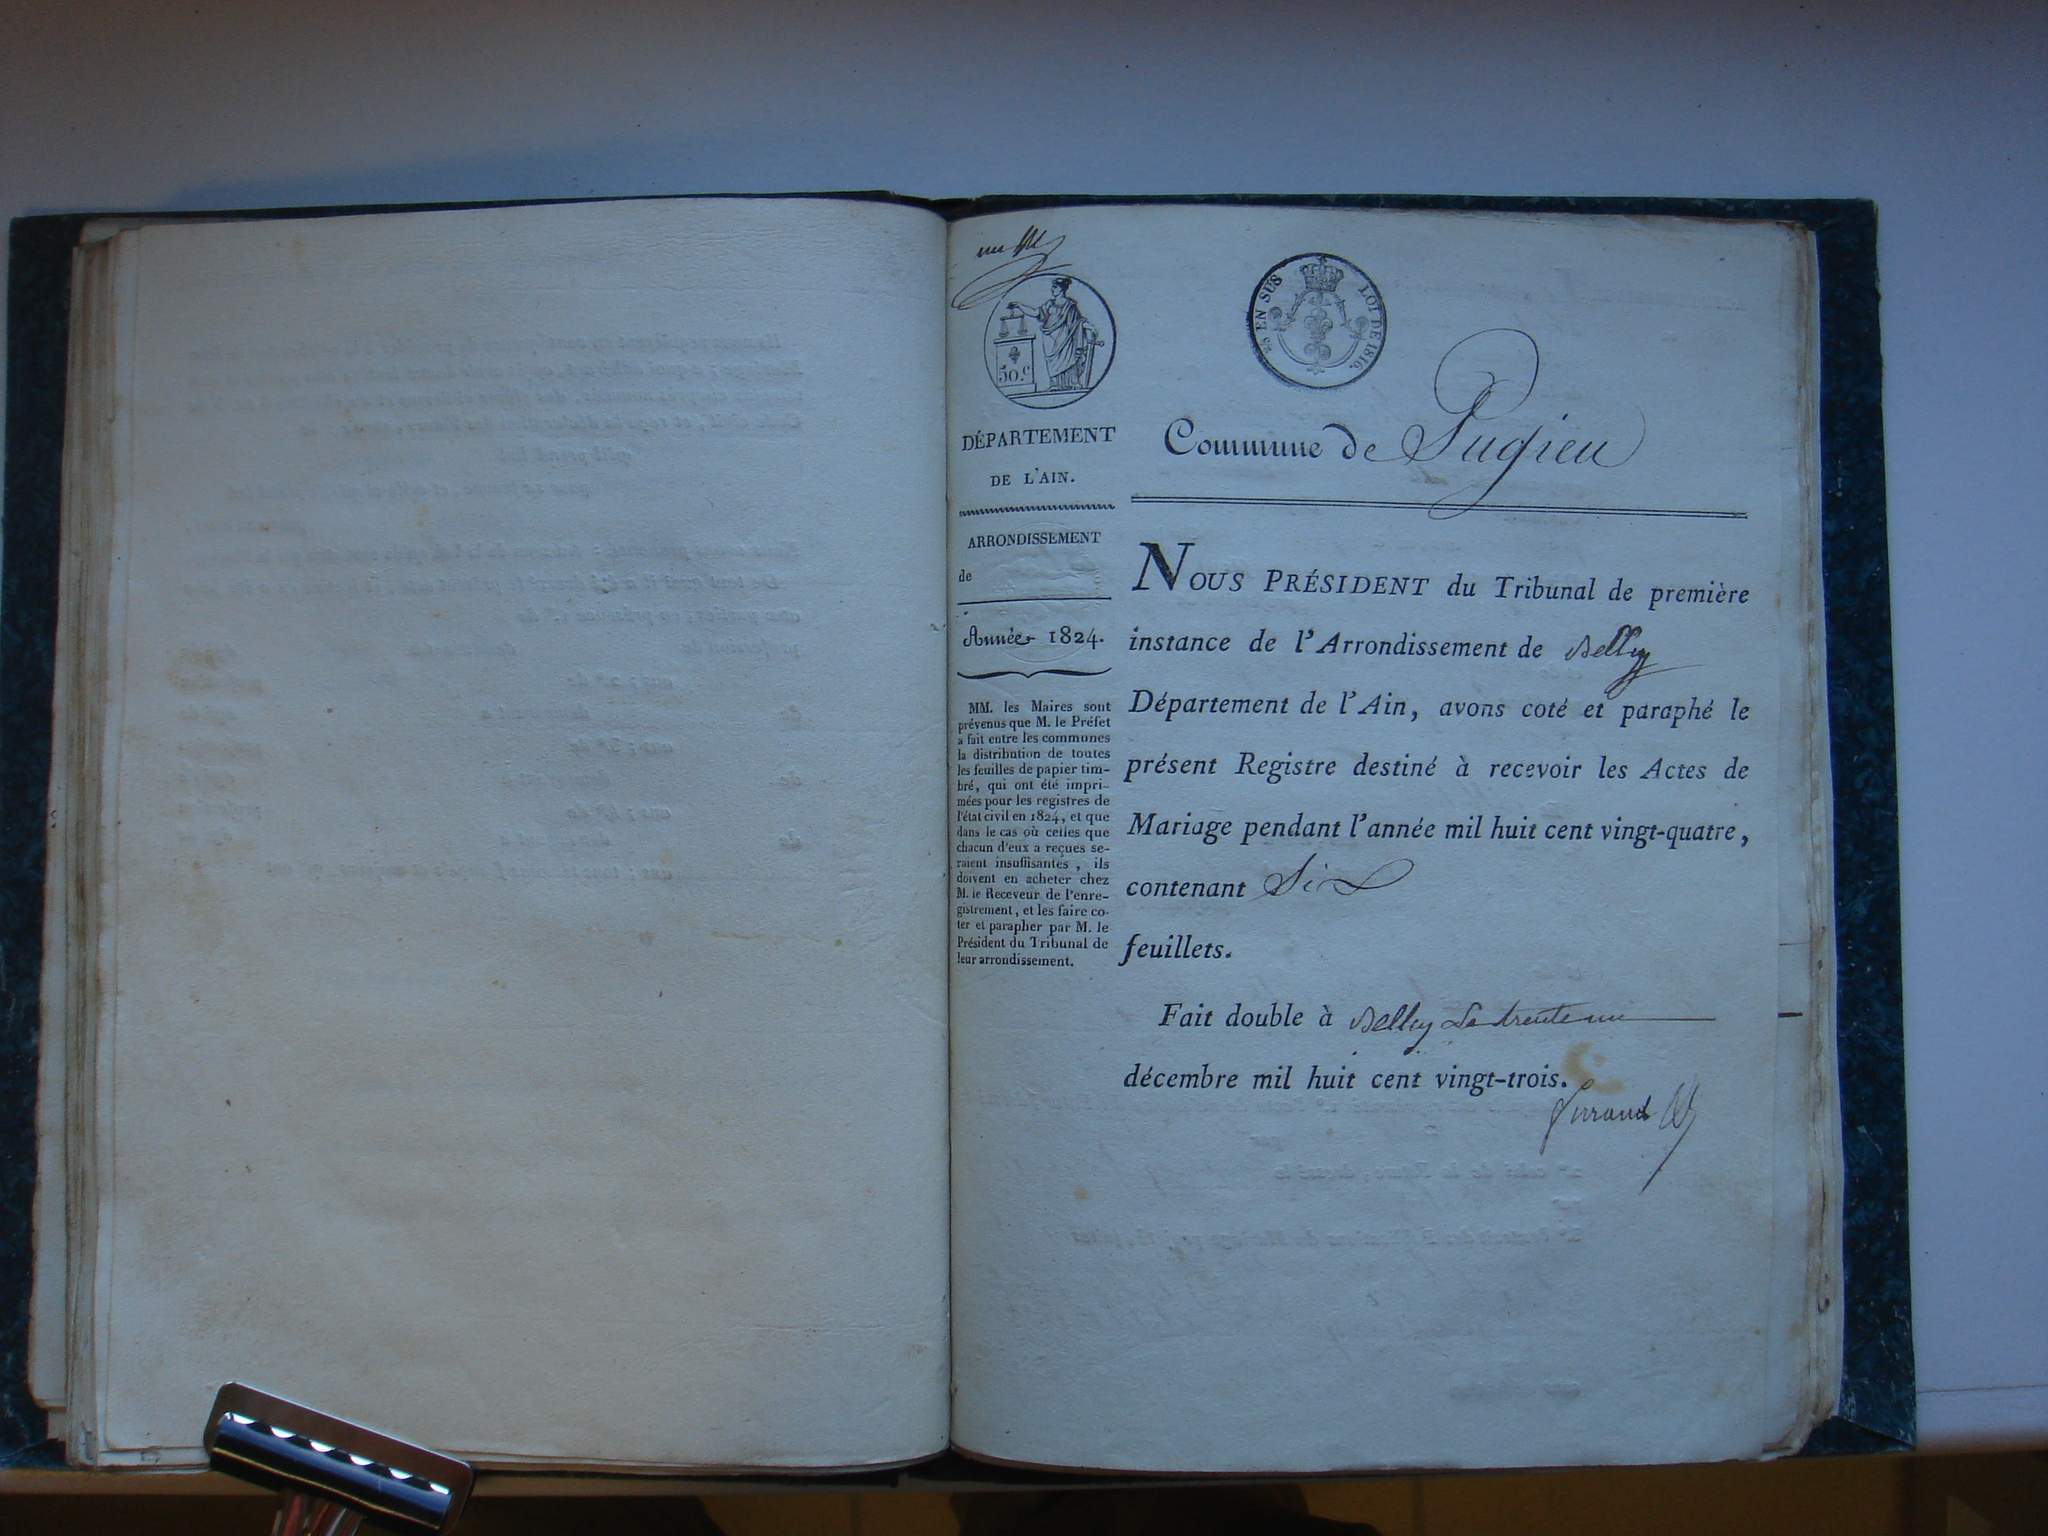 un
50.c
25 EN SUS LOI DE 1816.
DÉPARTEMENT
DE L'AIN.
ARRONDISSEMENT
de
Année 1824.
MM. les Maires sont
prévenus que M. le Préfet
a fait entre les communes
la distribution de toutes
les feuilles de papier tim-
bré, qui ont été impri-
mées pour les registres de
l'état civil en 1824, et que
dans le cas où celles que
chacun d'eux a reçues se-
raient insuffisantes, ils
doivent en acheter chez
M. le Receveur de l'enre-
gistrement, et les faire co-
ter et parapher par M. le
Président du Tribunal de
leur arrondissement.
Commune de Pugieu
NOUS PRÉSIDENT du Tribunal de première
instance de l'Arrondissement de Belley
Département de l'Ain, avons coté et paraphé le
présent Registre destiné à recevoir les Actes de
Mariage pendant l'année mil huit cent vingt-quatre,
contenant Six
feuillets.
Fait double à Belley Le trente un
décembre mil huit cent vingt-trois.